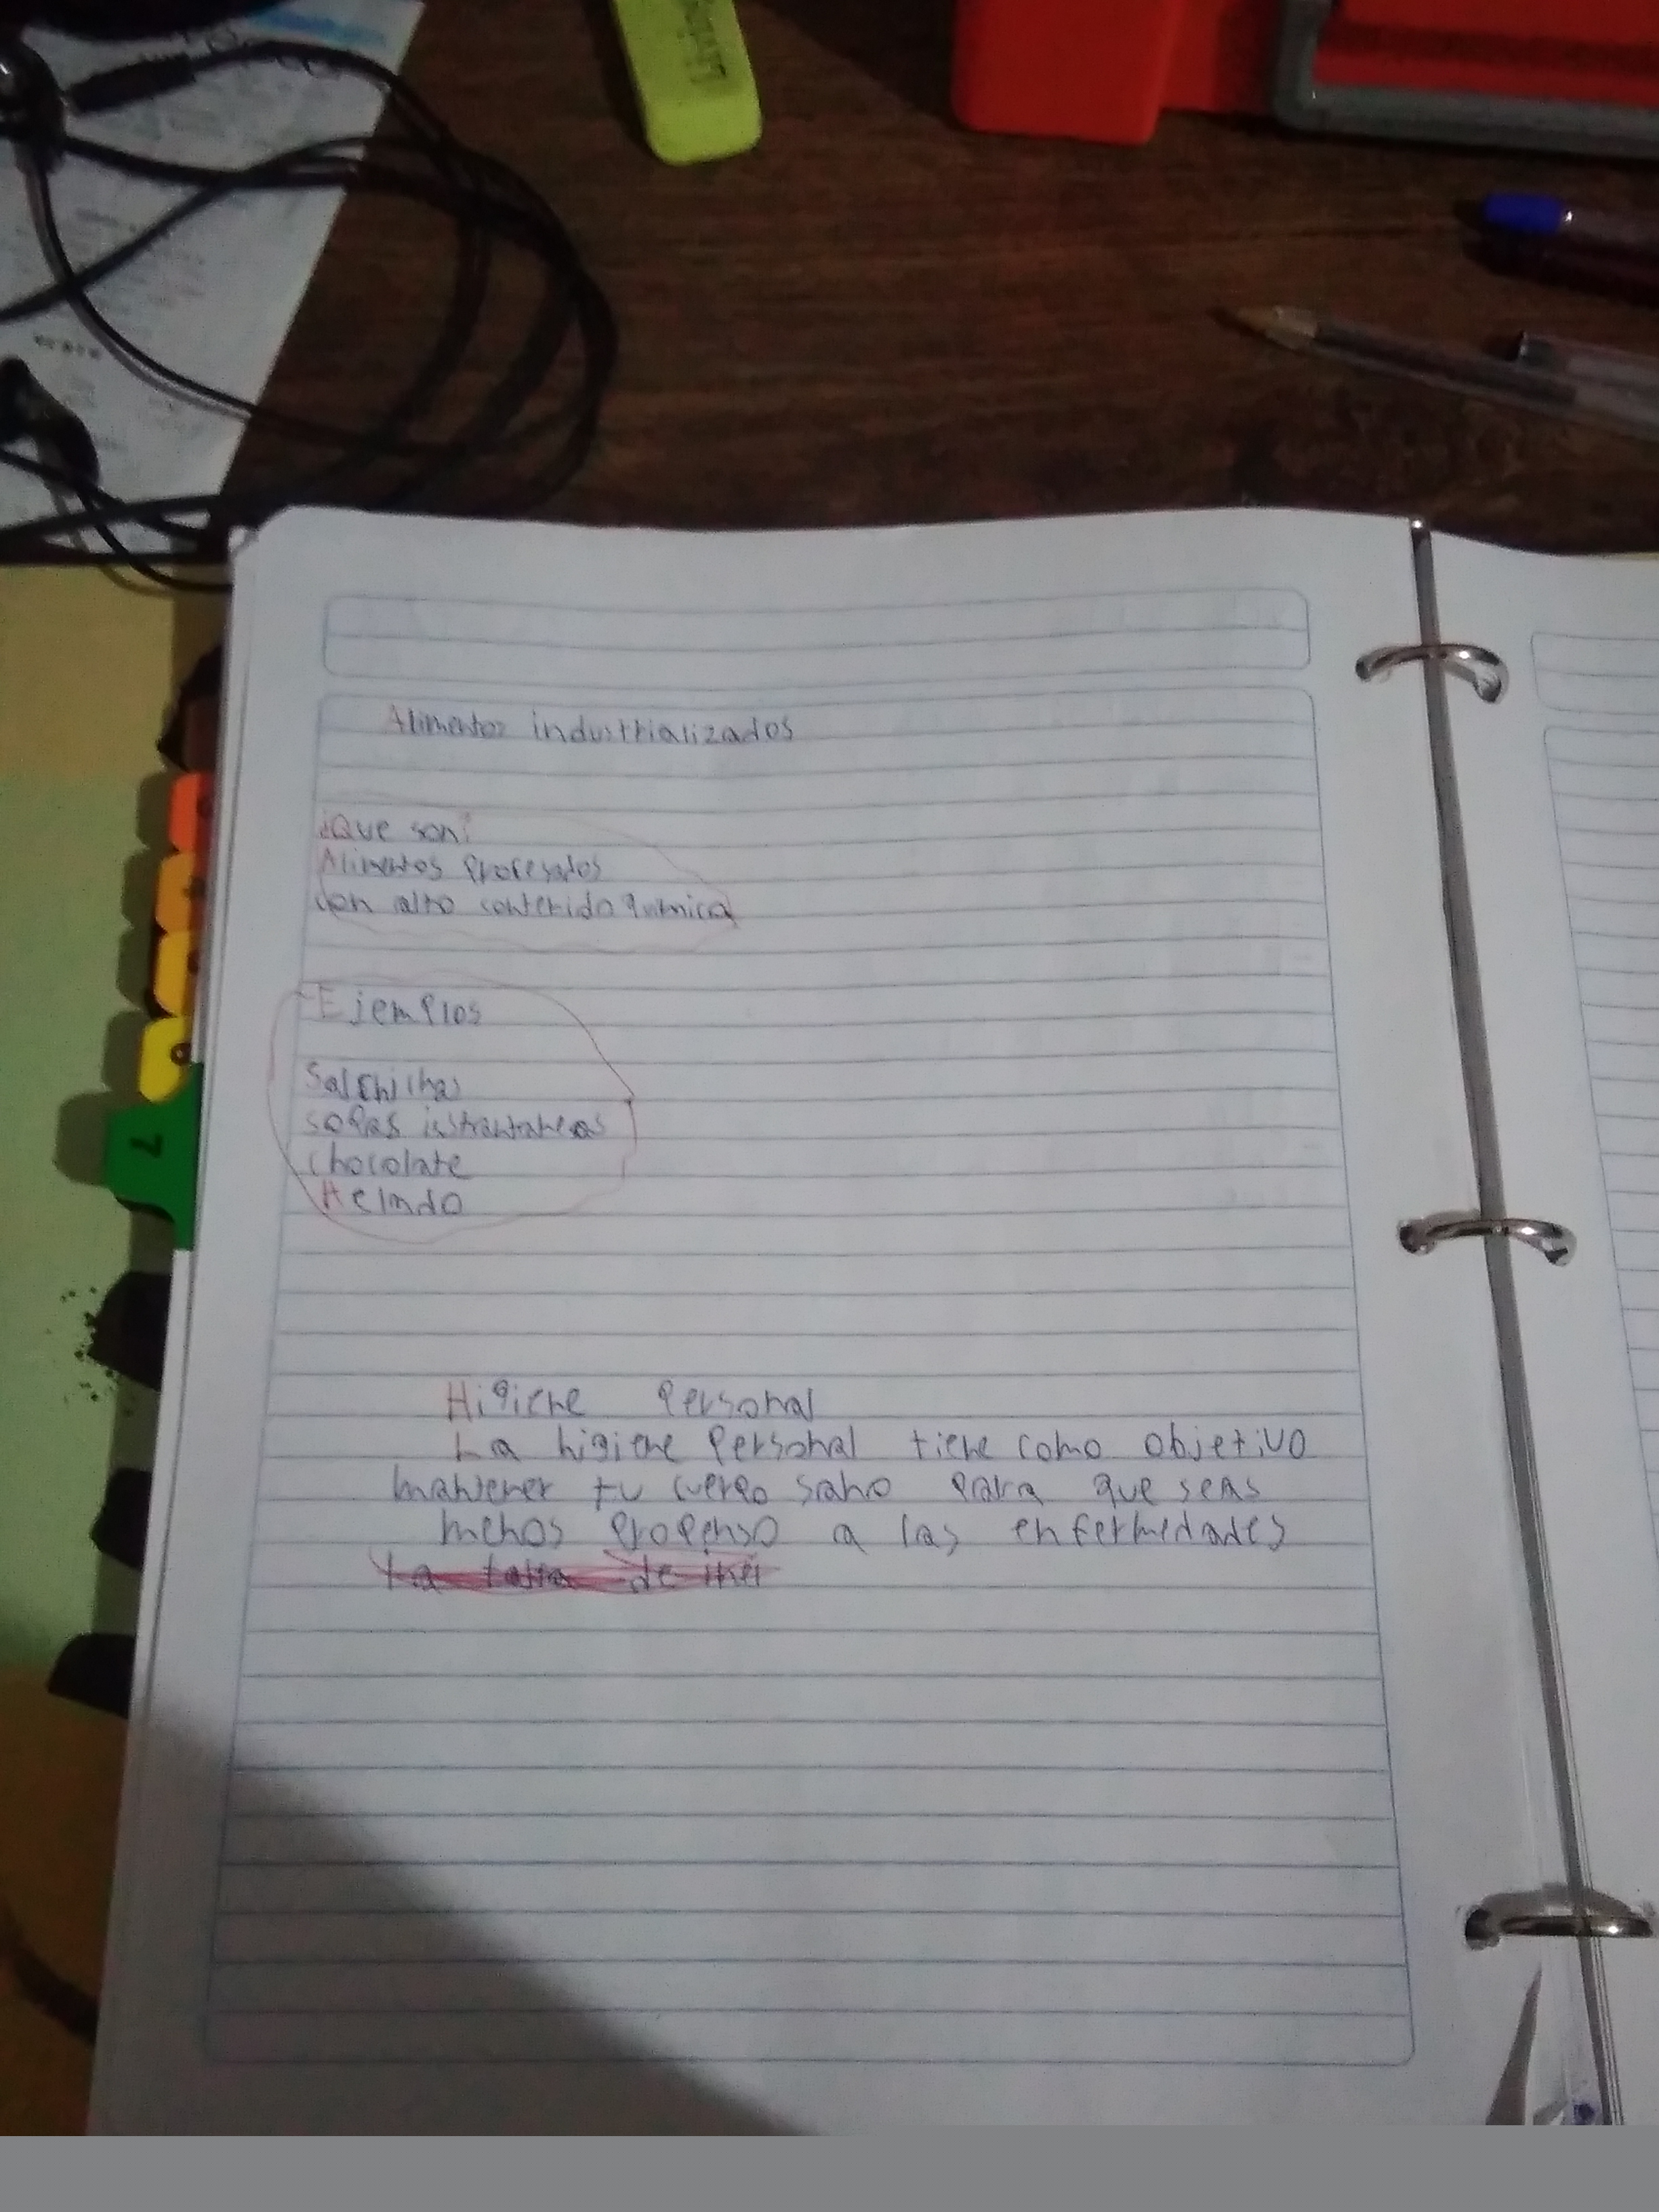 Alimentos industrializados
¿Que son?
Alimentos Procesados
con alto contenido quimica
Ejemplos
Salchichas
sopas instrantaneas
chocolate
Helado
Higiene Personal
La higiene Personal tiene como objetivo
mantener tu cuerpo sano para que seas
menos propenso a las enfermedades
7